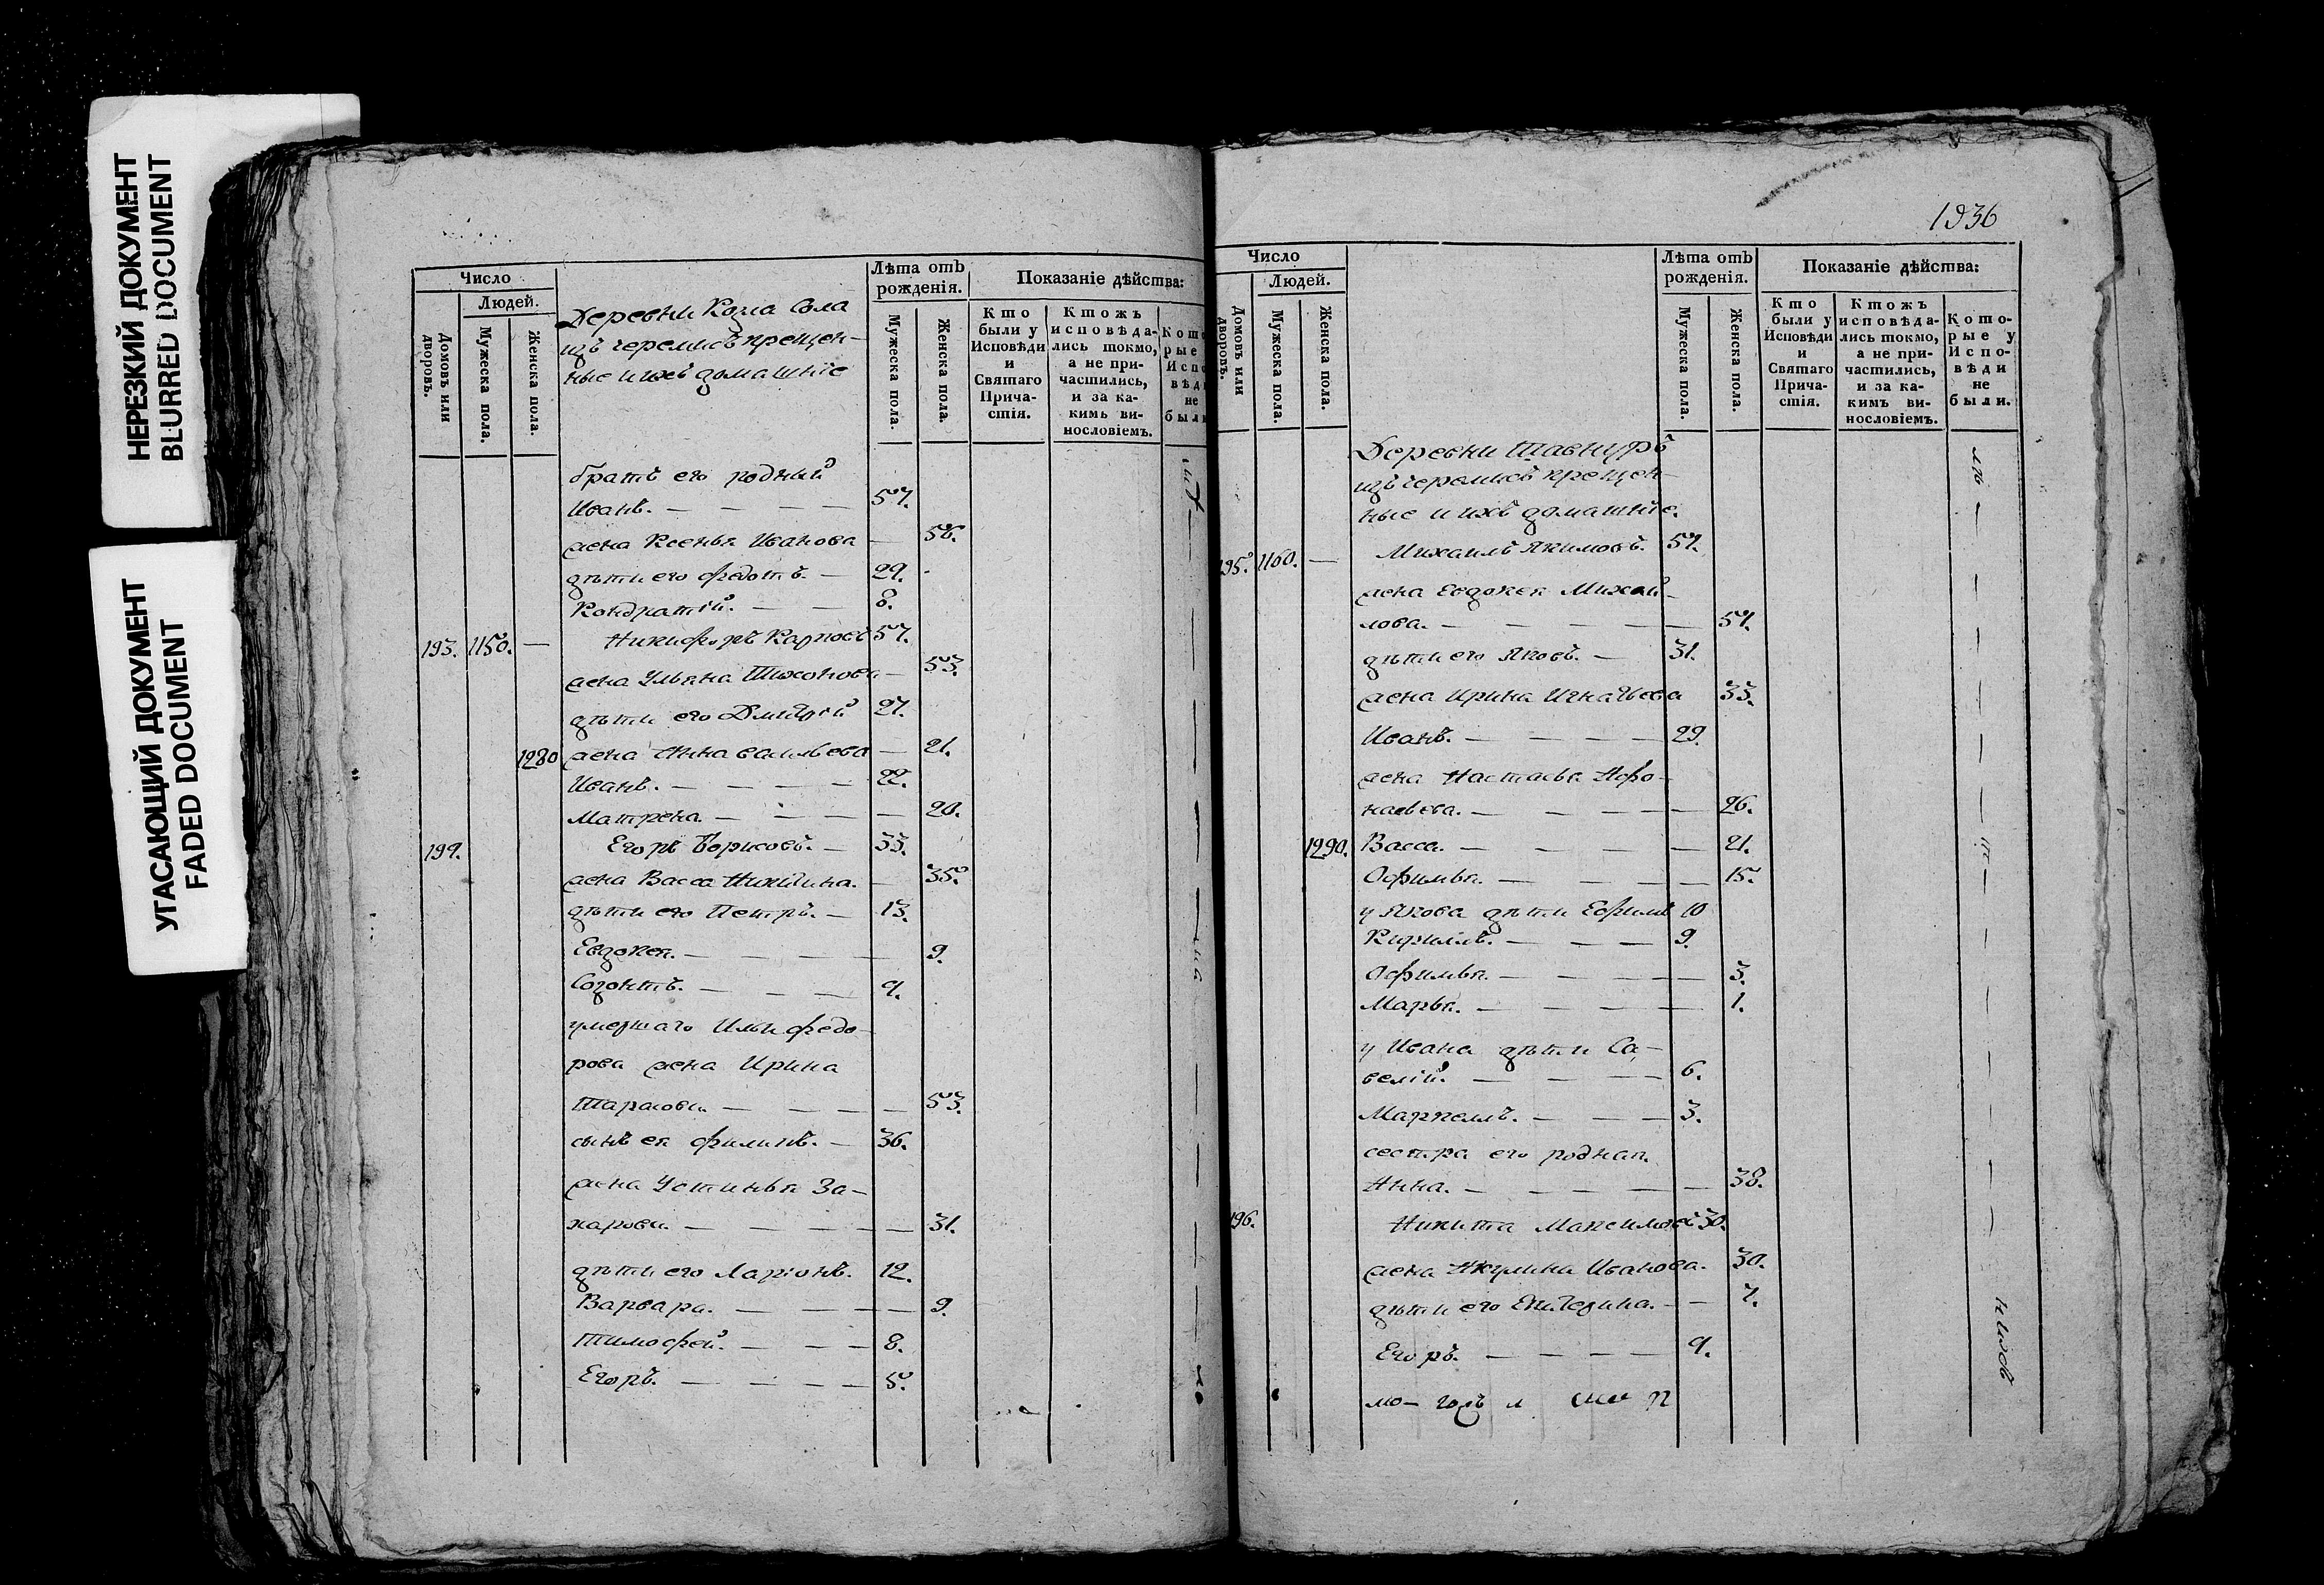 НЕРЕЗКИЙ ДОКУМЕНТ
BLURRED DOCUMENT
УГАСАЮЩИЙ ДОКУМЕНТ
FADED DOCUMENT
Число
Людей.
Домовъ или дворовъ.
Мужеска пола.
Женска пола.
Деревни Кожла Сола
изъ черемисъ крещен-
ные и ихъ домашніе
Лѣта отъ рожденія.
Мужеска пола.
Женска пола.
Показаніе дѣйства:
Кто были у Исповѣди и Святаго Прича-стія.
Ктожъ исповѣда-лись токмо, а не при-частились, и за ка-кимъ ви-нословіемъ.
братъ его родный
Иванъ. 57.
жена Ксенья Иванова 56.
дѣти его Федотъ. 29.
Кондратій. 8.
193. 1150. Никифоръ Карповъ 57.
жена Ульяна Тихонова 53.
дѣти его Дмитрій 27.
1280 жена Анна Васильева 21.
Иванъ. 22.
Матрена. 20.
194. Егоръ Борисовъ. 33.
жена Васса Никитина. 35.
дѣти его Петръ. 13.
Евдокея. 9.
Созонтъ. 4.
умершаго Ильи Федо-
рова жена Ирина
Тарасова. 53.
сынъ ея Филипъ. 36.
жена Устинья За-
харова. 31.
дѣти его Ларіонъ. 12.
Варвара. 9.
Тимофей. 8.
Егоръ. 5.
1936
Число
Людей.
Домовъ или дворовъ.
Мужеска пола.
Женска пола.
Лѣта отъ рожденія.
Мужеска пола.
Женска пола.
Показаніе дѣйства:
Кто были у Исповѣди и Святаго Прича-стія.
Ктожъ исповѣда-лись токмо, а не при-частились, и за ка-кимъ ви-нословіемъ.
Кото-рые у Испо-вѣди не были.
Деревни Шавнуръ
изъ черемисъ крещен-
ные и ихъ домашніе.
195. 1160. Михаилъ Якимовъ. 54.
жена Евдокея Михай-
лова. 54.
дѣти его Яковъ. 31.
жена Ирина Игнатьева 33.
Иванъ. 29.
жена Настасья Афо-
насьева. 26.
1290. Васса. 21.
Офимья. 15.
у Якова дѣти Ефимъ 10
Кирилъ. 9.
Офимья. 3.
Марья. 1.
у Ивана дѣти Са-
велій. 6.
Маркелъ. 3.
сестра его родная
Анна. 38.
196. Никита Максимовъ 30.
жена Акулина Иванова. 30.
дѣти его Екатерина. 7.
Егоръ. 4.